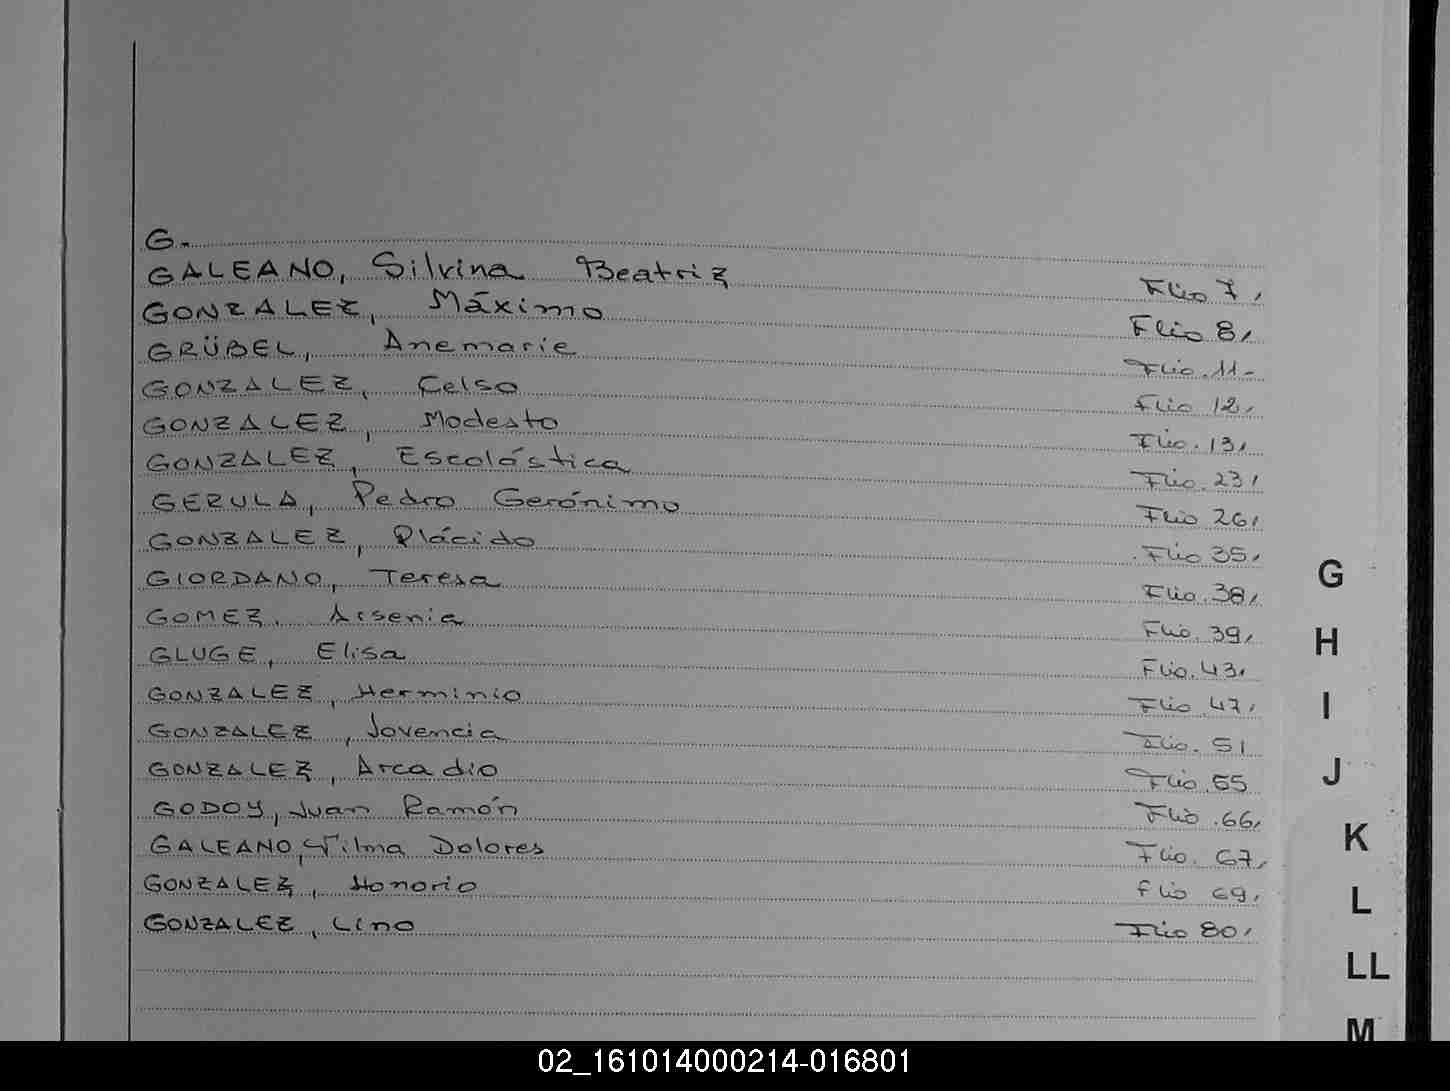 G.
GALEANO, Silvina Beatriz Flio 7,
GONZALEZ, Máximo Flio 8,
GRÜBEL, Anemarie Flio. 11-
GONZALEZ, Celso flio 12,
GONZALEZ, Modesto Flio. 13,
GONZALEZ, Escolástica Flio. 23,
GERULA, Pedro Gerónimo Flio 26,
GONZALEZ, Plácido Flio 35,
GIORDANO, Teresa Flio. 38,
GOMEZ, Arsenia Flio. 39,
GLUGE, Elisa Flio. 43,
GONZALEZ, Herminio Flio 47,
GONZALEZ, Jovencia Flio. 51
GONZALEZ, Arcadio Flio. 55
GODOY, Juan Ramón Flio. 66,
GALEANO, Vilma Dolores Flio. 67,
GONZALEZ, Honorio flio 69,
GONZALEZ, Lino Flio 80,
G
H
I
J
K
L
LL
M
02_161014000214-016801